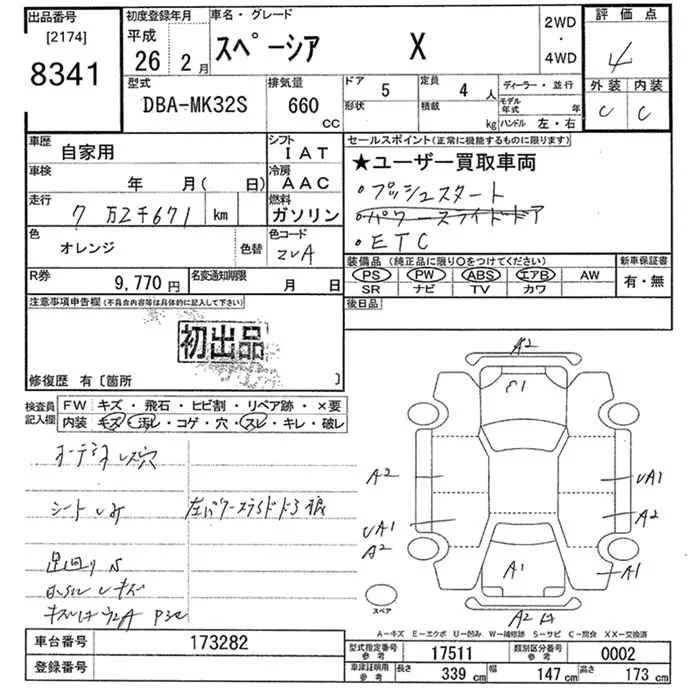 出品番号
[2174]
8341
初度登録年月
平成
26 2月
車名・グレード
スペーシア X
2WD
・
4WD
評価点
4
外装 内装
C C
型式
DBA-MK32S
排気量
660
CC
ドア
5
形状
定員
4 人
積載
kg
ディーラー・並行
モデル年式 年
ハンドル 左・右
車歴
自家用
シフト
IAT
車検
年 月( 日)
冷房
AAC
走行
7万2千671 km
燃料
ガソリン
色
オレンジ
色替
色コード
ZVA
R券
9,770円
名変通知期限
月 日
セールスポイント(正常に機能するものに限ります)
★ユーザー買取車両
・プッシュスタート
・パワースライドドア
・ETC
装備品(純正品に限り〇をつけてください)
PS PW ABS エアB AW
SR ナビ TV カワ
新車保証書
有・無
後日品
注意事項申告欄(不具合内容等は具体的に記入して下さい)
初出品
修復歴 有〔箇所
検査員記入欄
FW キズ・飛石・ヒビ割・リペア跡・×要
内装 キズ・汚レ・コゲ・穴・スレ・キレ・破レ
オーディオレス穴
シート
左パワースライドドア
足回り
A2
E1
A2
UA1
UA1
A2
A2
A1
A1
A2
スペア
A-キズ E-エクボ U-凹み W-補修跡 S-サビ C-腐食 XX-交換済
車台番号
173282
登録番号
型式指定番号
参考
17511
類別区分番号
参考
0002
車庫証明用
参考
長さ
339 cm
幅
147 cm
高さ
173 cm